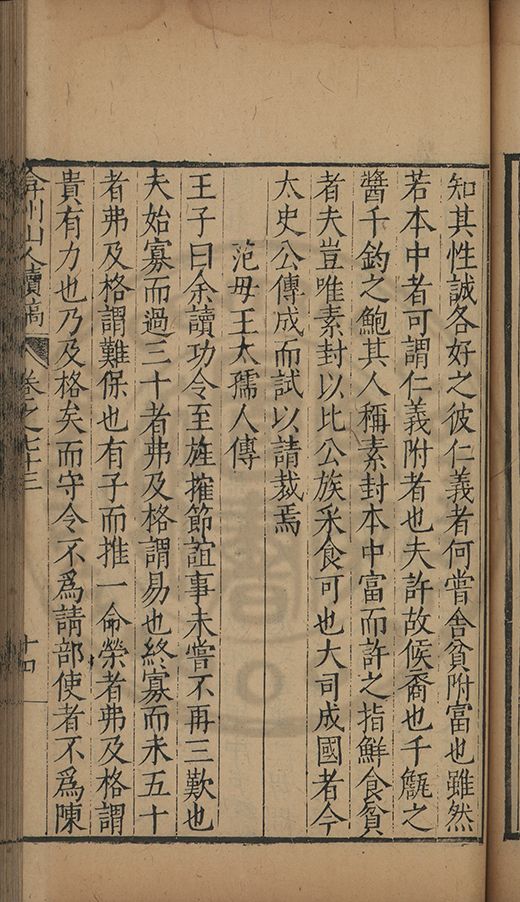 知其性誠各好之彼仁義者何嘗舍貧附富也雖然
若本中者可謂仁義附者也夫許故候裔也千甔之
醬千鈞之鮑其人稱素封本中富而許之指鮮食貧
者夫豈唯素封以比公族采食可也大司成國者今
太史公傳成而試以請裁焉
范毋王太孺人傳
王子曰余讀功令至旌擢節誼事未嘗不再三歎也
夫始寡而過三十者弗及格謂易也終寡而未五十
者弗及格謂難保也有子而推一命榮者弗及格謂
貴有力也乃及格矣而守令不爲請部使者不爲陳
弇州山人續稿
卷之七十三
十四